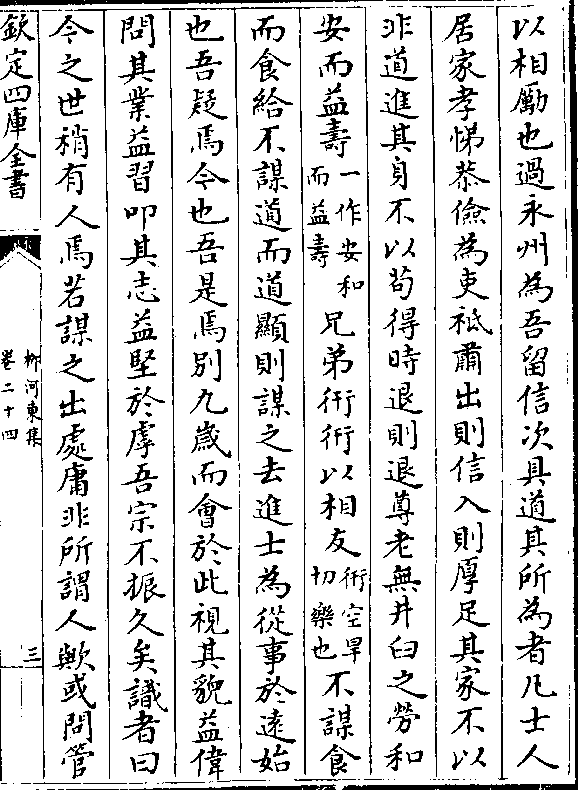 以相勵也過永州為吾留信次具道其所為者凡士人
居家孝悌恭儉為吏祗肅出則信入則厚足其家不以
非道進其身不以苟得時退則退尊老無井臼之勞和
安而益壽一作安和而益壽兄弟衎衎以相友衎空旱切樂也不謀食
而食給不謀道而道顯則謀之去進士為從事於遠始
也吾疑焉今也吾是焉別九歲而會於此視其貌益偉
問其業益習叩其志益堅於虖吾宗不振久矣識者曰
今之世稍有人焉若謀之出處庸非所謂人歟或問管
欽定四庫全書
柳河東集
卷二十四
三